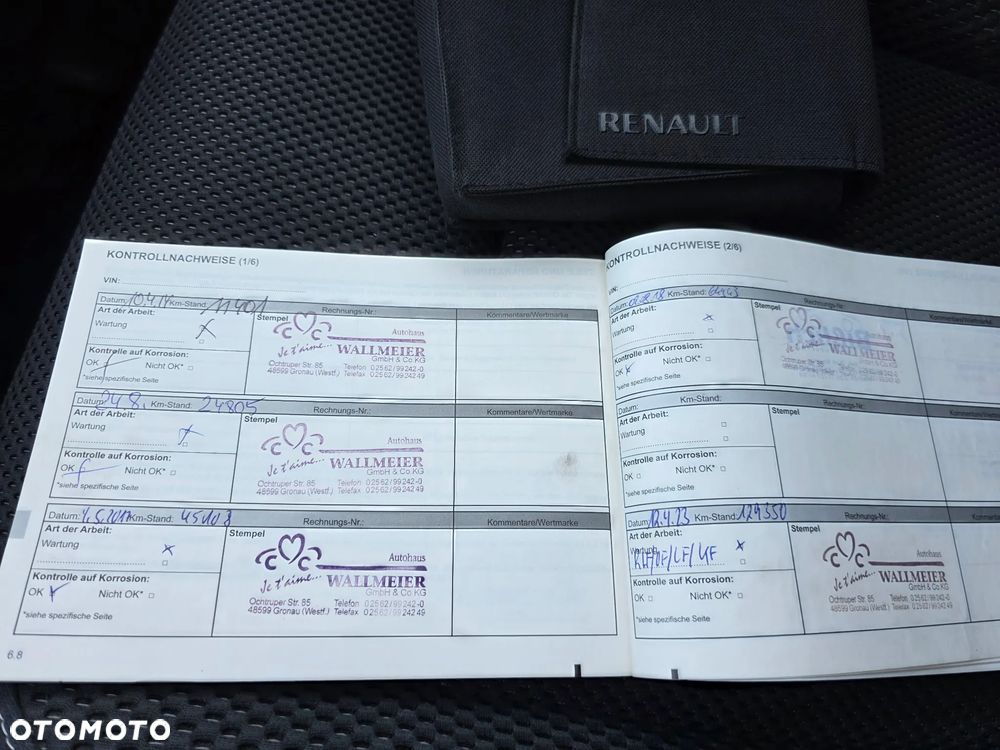 RENAULT
KONTROLLNACHWEISE (1/6)
VIN:
Datum: 10.4.14 Km-Stand: 11401
Rechnungs-Nr.:
Kommentare/Wertmarke
Art der Arbeit:
Stempel
Wartung
x
Autohaus
Je t'aime... WALLMEIER
GmbH & Co.KG
Ochtruper Str. 85 Telefon 02562/99242-0
48599 Gronau (Westf.) Telefax 02562/9924249
Kontrolle auf Korrosion:
OK Nicht OK*
*siehe spezifische Seite
Datum: Km-Stand: 24805
Rechnungs-Nr.:
Kommentare/Wertmarke
Art der Arbeit:
Stempel
Wartung
x
Autohaus
Je t'aime... WALLMEIER
GmbH & Co.KG
Ochtruper Str. 85 Telefon 02562/99242-0
48599 Gronau (Westf.) Telefax 02562/9924249
Kontrolle auf Korrosion:
OK Nicht OK*
*siehe spezifische Seite
Datum: Km-Stand: 45108
Rechnungs-Nr.:
Kommentare/Wertmarke
Art der Arbeit:
Stempel
Wartung
x
Autohaus
Je t'aime... WALLMEIER
GmbH & Co.KG
Ochtruper Str. 85 Telefon 02562/99242-0
48599 Gronau (Westf.) Telefax 02562/9924249
Kontrolle auf Korrosion:
OK Nicht OK*
*siehe spezifische Seite
6.8
KONTROLLNACHWEISE (2/6)
VIN:
Datum: Km-Stand:
Rechnungs-Nr.:
Kommentare/Wertmarke
Art der Arbeit:
Stempel
Wartung
x
Je t'aime... WALLMEIER
GmbH & Co.KG
Ochtruper Str. 85 Telefon 02562/99242-0
48599 Gronau (Westf.) Telefax 02562/9924249
Kontrolle auf Korrosion:
OK Nicht OK*
*siehe spezifische Seite
Datum: Km-Stand:
Rechnungs-Nr.:
Stempel
Art der Arbeit:
Wartung
Kontrolle auf Korrosion:
OK Nicht OK*
*siehe spezifische Seite
Datum: 12.4.23 Km-Stand: 129550
Rechnungs-Nr.:
Art der Arbeit:
Stempel
Wartung
x
Autohaus
Je t'aime... WALLMEIER
GmbH & Co.KG
Ochtruper Str. 85 Telefon 02562/99242-0
48599 Gronau (Westf.) Telefax 02562/9924249
Kontrolle auf Korrosion:
OK Nicht OK*
*siehe spezifische Seite
OTOMOTO